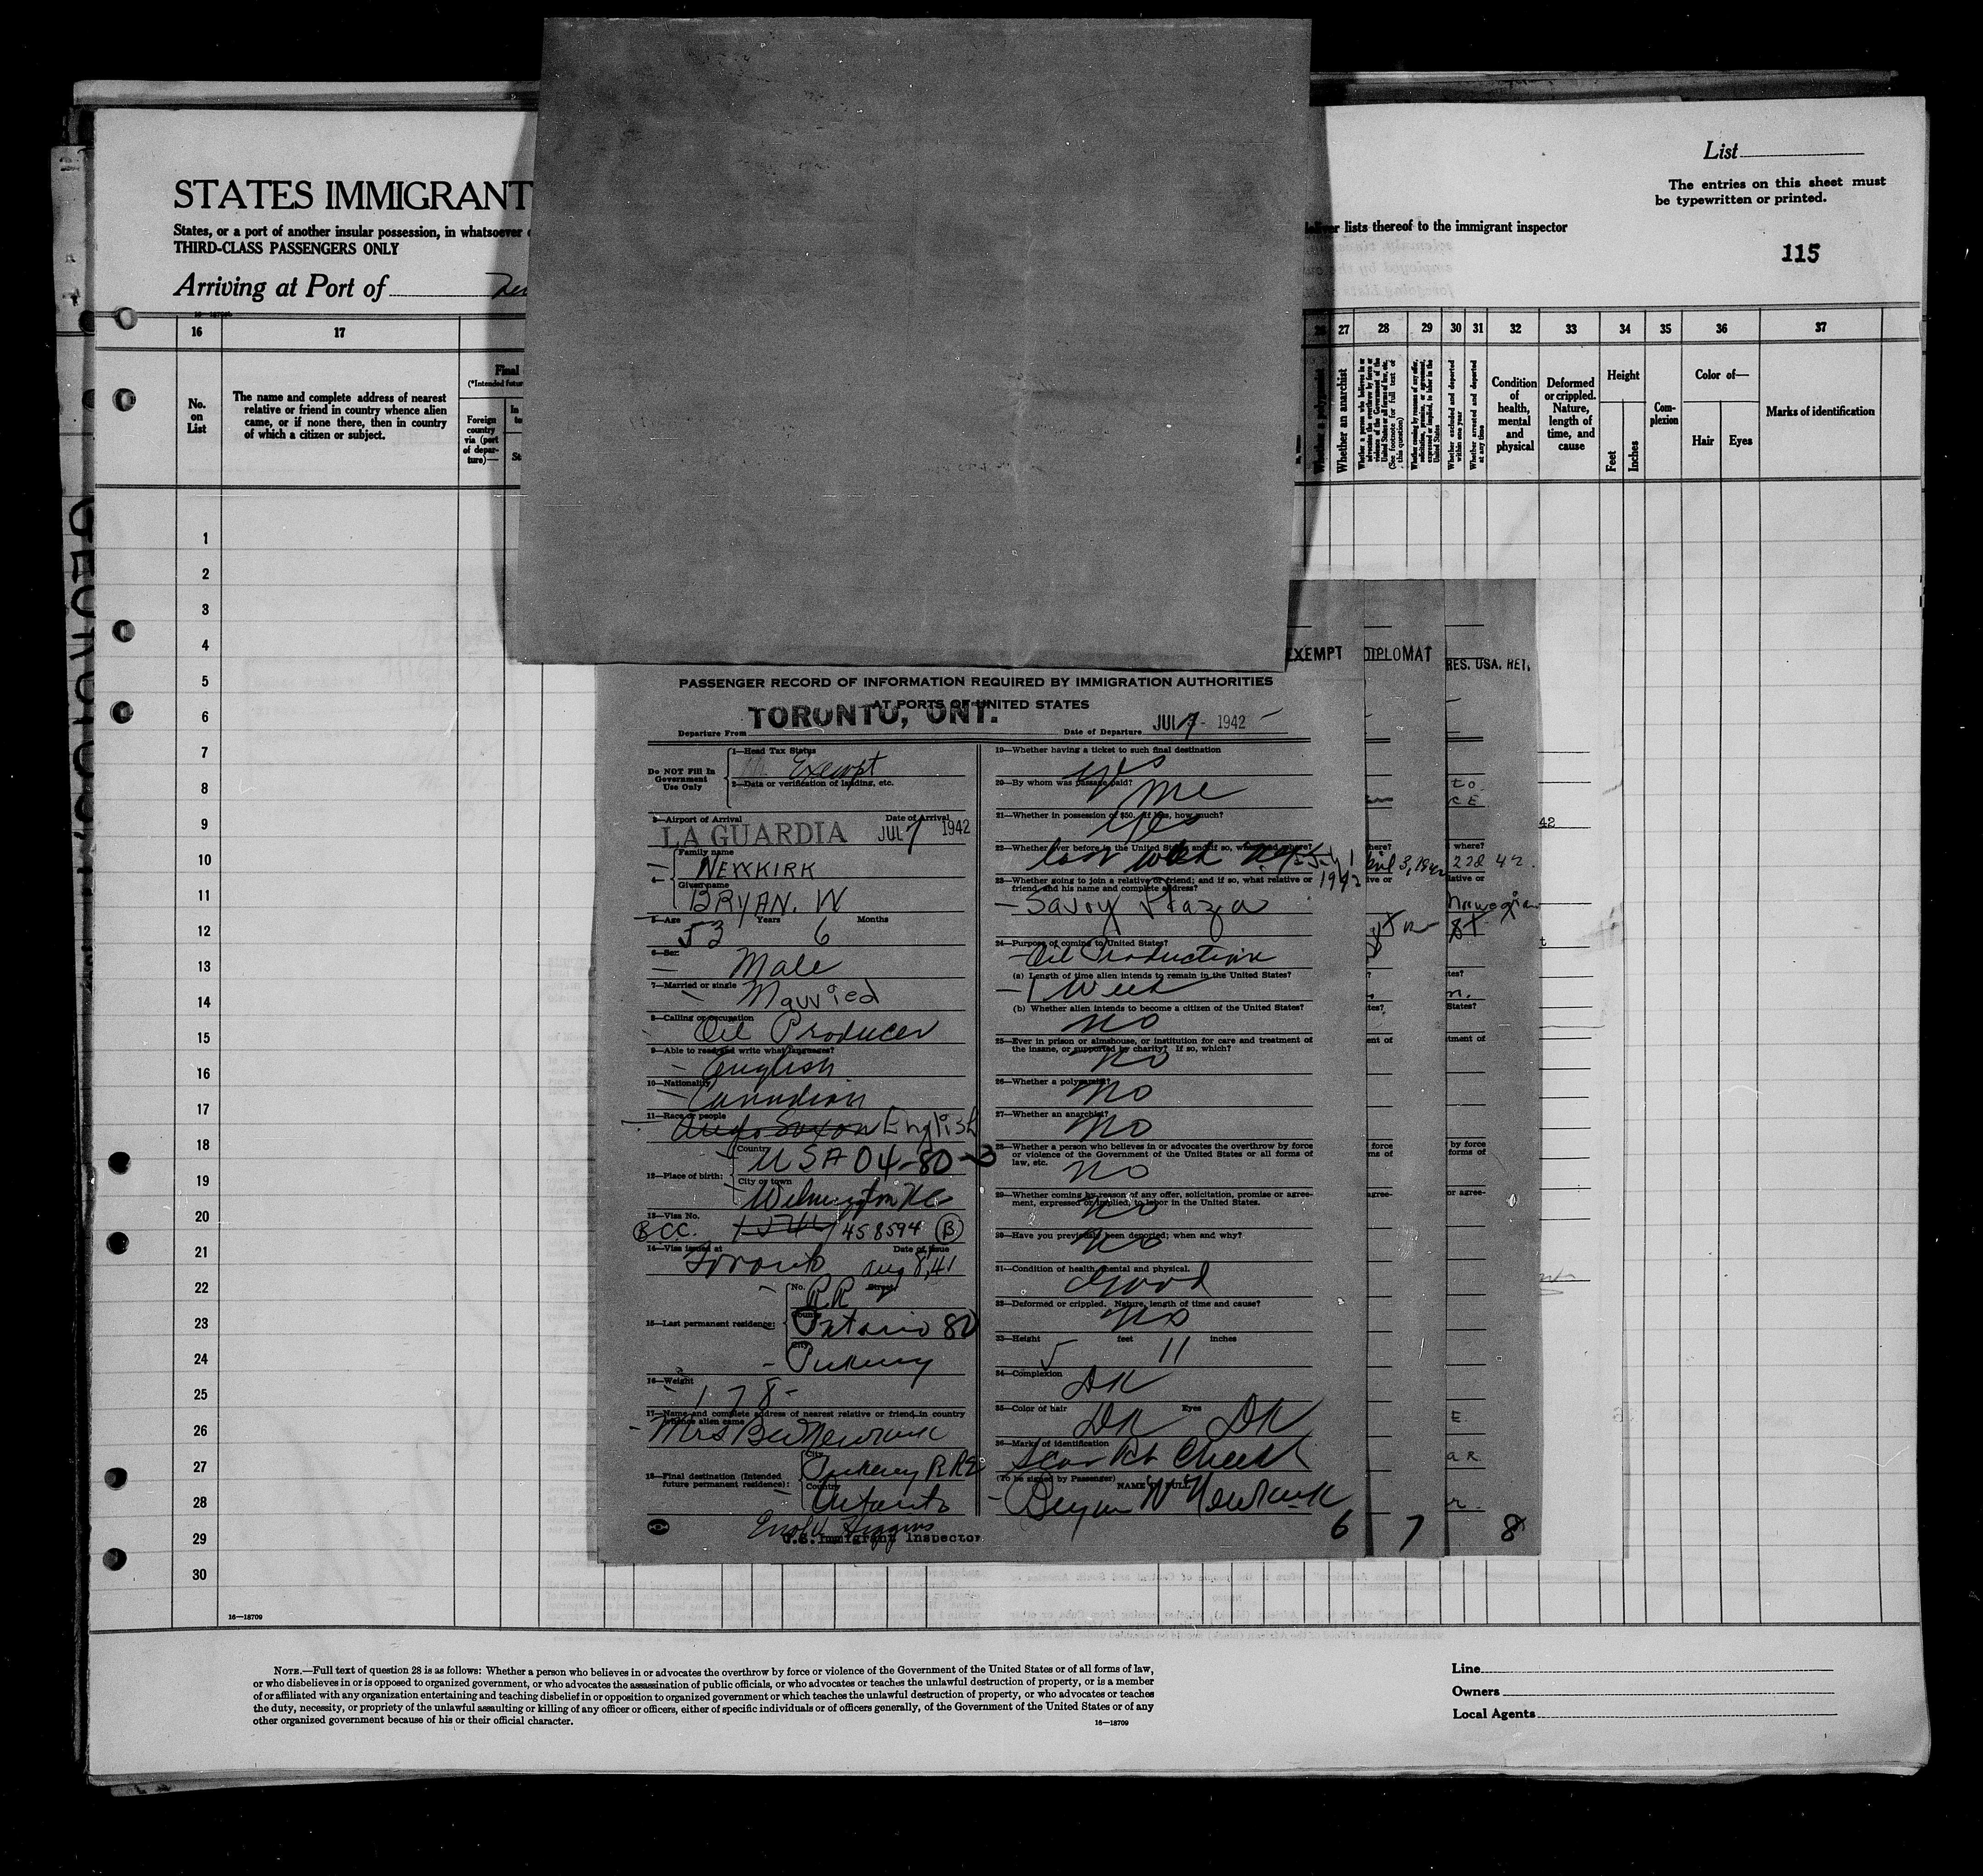 List
The entries on this sheet must
be typewritten or printed.
STATES IMMIGRANT
States, or a port of another insular possession, in whatsoever
lists thereof to the immigrant inspector
THIRD-CLASS PASSENGERS ONLY
115
Arriving at Port of
16 17 27 28 29 30 31 32 33 34 35 36 37
No. on List
The name and complete address of nearest
relative or friend in country whence alien
came, or if none there, then in country
of which a citizen or subject.
Final
(*Intended
Foreign
country
via (port
of depar-
ture)—
Whether a polygamist
Whether an anarchist
Whether a person who believes in or
advocates the overthrow by force or
violence of the Government of the
United States or all forms of law, etc.
(See footnote for full text of
this question)
Whether coming by reason of any offer,
solicitation, promise, or agreement,
expressed or implied, to labor in the
United States
Whether excluded and deported
within one year
Whether arrested and deported
at any time
Condition
of
health,
mental
and
physical
Deformed
or crippled.
Nature,
length of
time, and
cause
Height
Feet
Inches
Com-
plexion
Color of—
Hair
Eyes
Marks of identification
1
2
3
4
5
6
7
8
9
10
11
12
13
14
15
16
17
18
19
20
21
22
23
24
25
26
27
28
29
30
EXEMPT
DIPLOMAT
RES. USA. RET.
PASSENGER RECORD OF INFORMATION REQUIRED BY IMMIGRATION AUTHORITIES
AT PORTS OF UNITED STATES
Departure From TORONTO, ONT.
Date of Departure JUL 7 - 1942
Do NOT Fill In
Government
Use Only
1—Head Tax Status
Exempt
2—Data or verification of landing, etc.
3—Airport of Arrival
Date of Arrival
LA GUARDIA JUL 7 1942
4—
Family name
NEWKIRK
Given name
BRYAN. W
5—Age Years Months
53 6
6—Sex
Male
7—Married or single
Married
8—Calling or occupation
Oil Producer
9—Able to read and write what languages?
English
10—Nationality
Canadian
11—Race or people
Anglo Saxon English
12—Place of birth:
Country
USA 04-80-3
City or town
Wilmington NC
13—Visa No.
BCC. 458594 B
14—Visa issued at Date of Issue
Toronto Aug 8, 41
15—Last permanent residence:
No. Street
RR
County
Ontario 80
City
Pickering
16—Weight
178
17—Name and complete address of nearest relative or friend in country
whence alien came
Mrs BW Newkirk
18—Final destination (Intended
future permanent residence):
City
Pickering RR
Country
Ontario
Higgins
U.S. Immigrant Inspector
19—Whether having a ticket to such final destination
yes
20—By whom was passage paid?
me
21—Whether in possession of $50. If less, how much?
yes
22—Whether ever before in the United States and if so, when and where?
last week July 1
1942
23—Whether going to join a relative or friend; and if so, what relative or
friend, and his name and complete address?
Savoy Plaza
24—Purpose of coming to United States?
Oil Production
(a) Length of time alien intends to remain in the United States?
1 Week
(b) Whether alien intends to become a citizen of the United States?
no
25—Ever in prison or almshouse, or institution for care and treatment of
the insane, or supported by charity? If so, which?
no
26—Whether a polygamist?
no
27—Whether an anarchist?
no
28—Whether a person who believes in or advocates the overthrow by force
or violence of the Government of the United States or all forms of
law, etc.
no
29—Whether coming by reason of any offer, solicitation, promise or agree-
ment, expressed or implied, to labor in the United States.
no
30—Have you previously been deported; when and why?
no
31—Condition of health, mental and physical.
Good
32—Deformed or crippled. Nature, length of time and cause?
no
33—Height feet inches
5 11
34—Complexion
DK
35—Color of hair Eyes
DK DK
36—Marks of identification
Scar Rt Cheek
(To be signed by Passenger) NAME IN FULL
Bryan W Newkirk
6
7
8
16—18709
NOTE.—Full text of question 28 is as follows: Whether a person who believes in or advocates the overthrow by force or violence of the Government of the United States or of all forms of law,
or who disbelieves in or is opposed to organized government, or who advocates the assassination of public officials, or who advocates or teaches the unlawful destruction of property, or is a member
of or affiliated with any organization entertaining and teaching disbelief in or opposition to organized government or which teaches the unlawful destruction of property, or who advocates or teaches
the duty, necessity, or propriety of the unlawful assaulting or killing of any officer or officers, either of specific individuals or of officers generally, of the Government of the United States or of any
other organized government because of his or their official character.
16—18709
Line
Owners
Local Agents